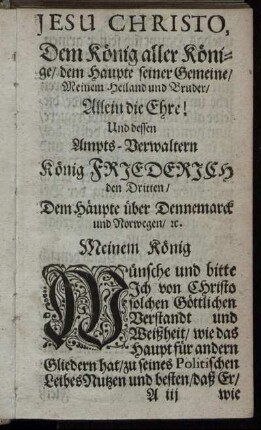 JESU CHRISTO,
Dem König aller Köni-
ge/ dem Haupte seiner Gemeine/
Meinem Heiland und Bruder/
Allein die Ehre!
Und dessen
Ampts-Verwaltern
König FRIEDERICH
den Dritten/
Dem Häupte über Dennemarck
und Norwegen/ ꝛc.
Meinem König
Wünsche und bitte
Ich von CHristo
solchen Göttlichen
Verstandt und
Weißheit/ wie das
Haupt für andern
Gliedern hat/ zu seines Politischen
Leibes Nutzen und besten/ daß Er/
A iij wie